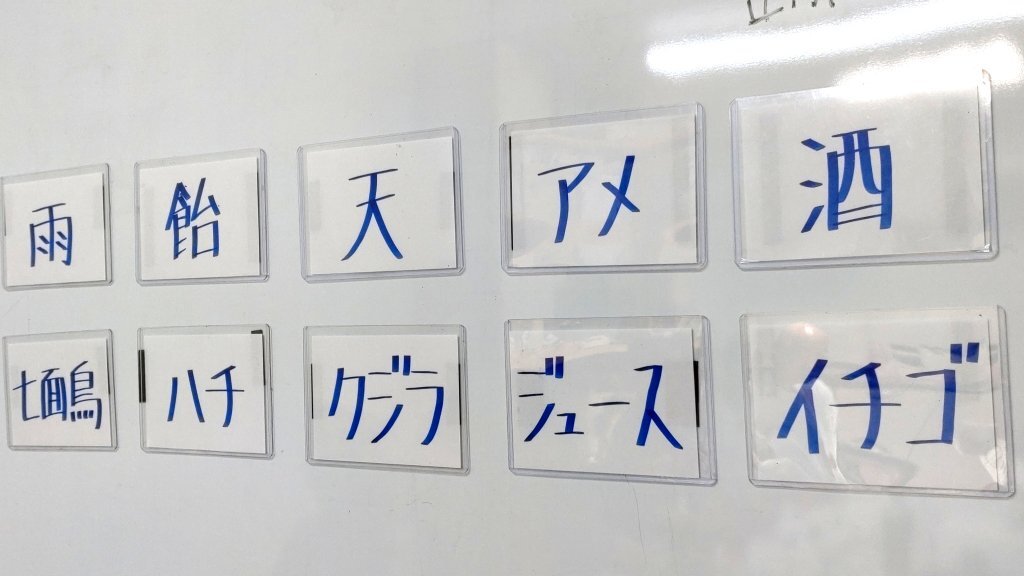 雨 飴 天 アメ 酒
七面鳥 ハチ クジラ ジュース イチゴ